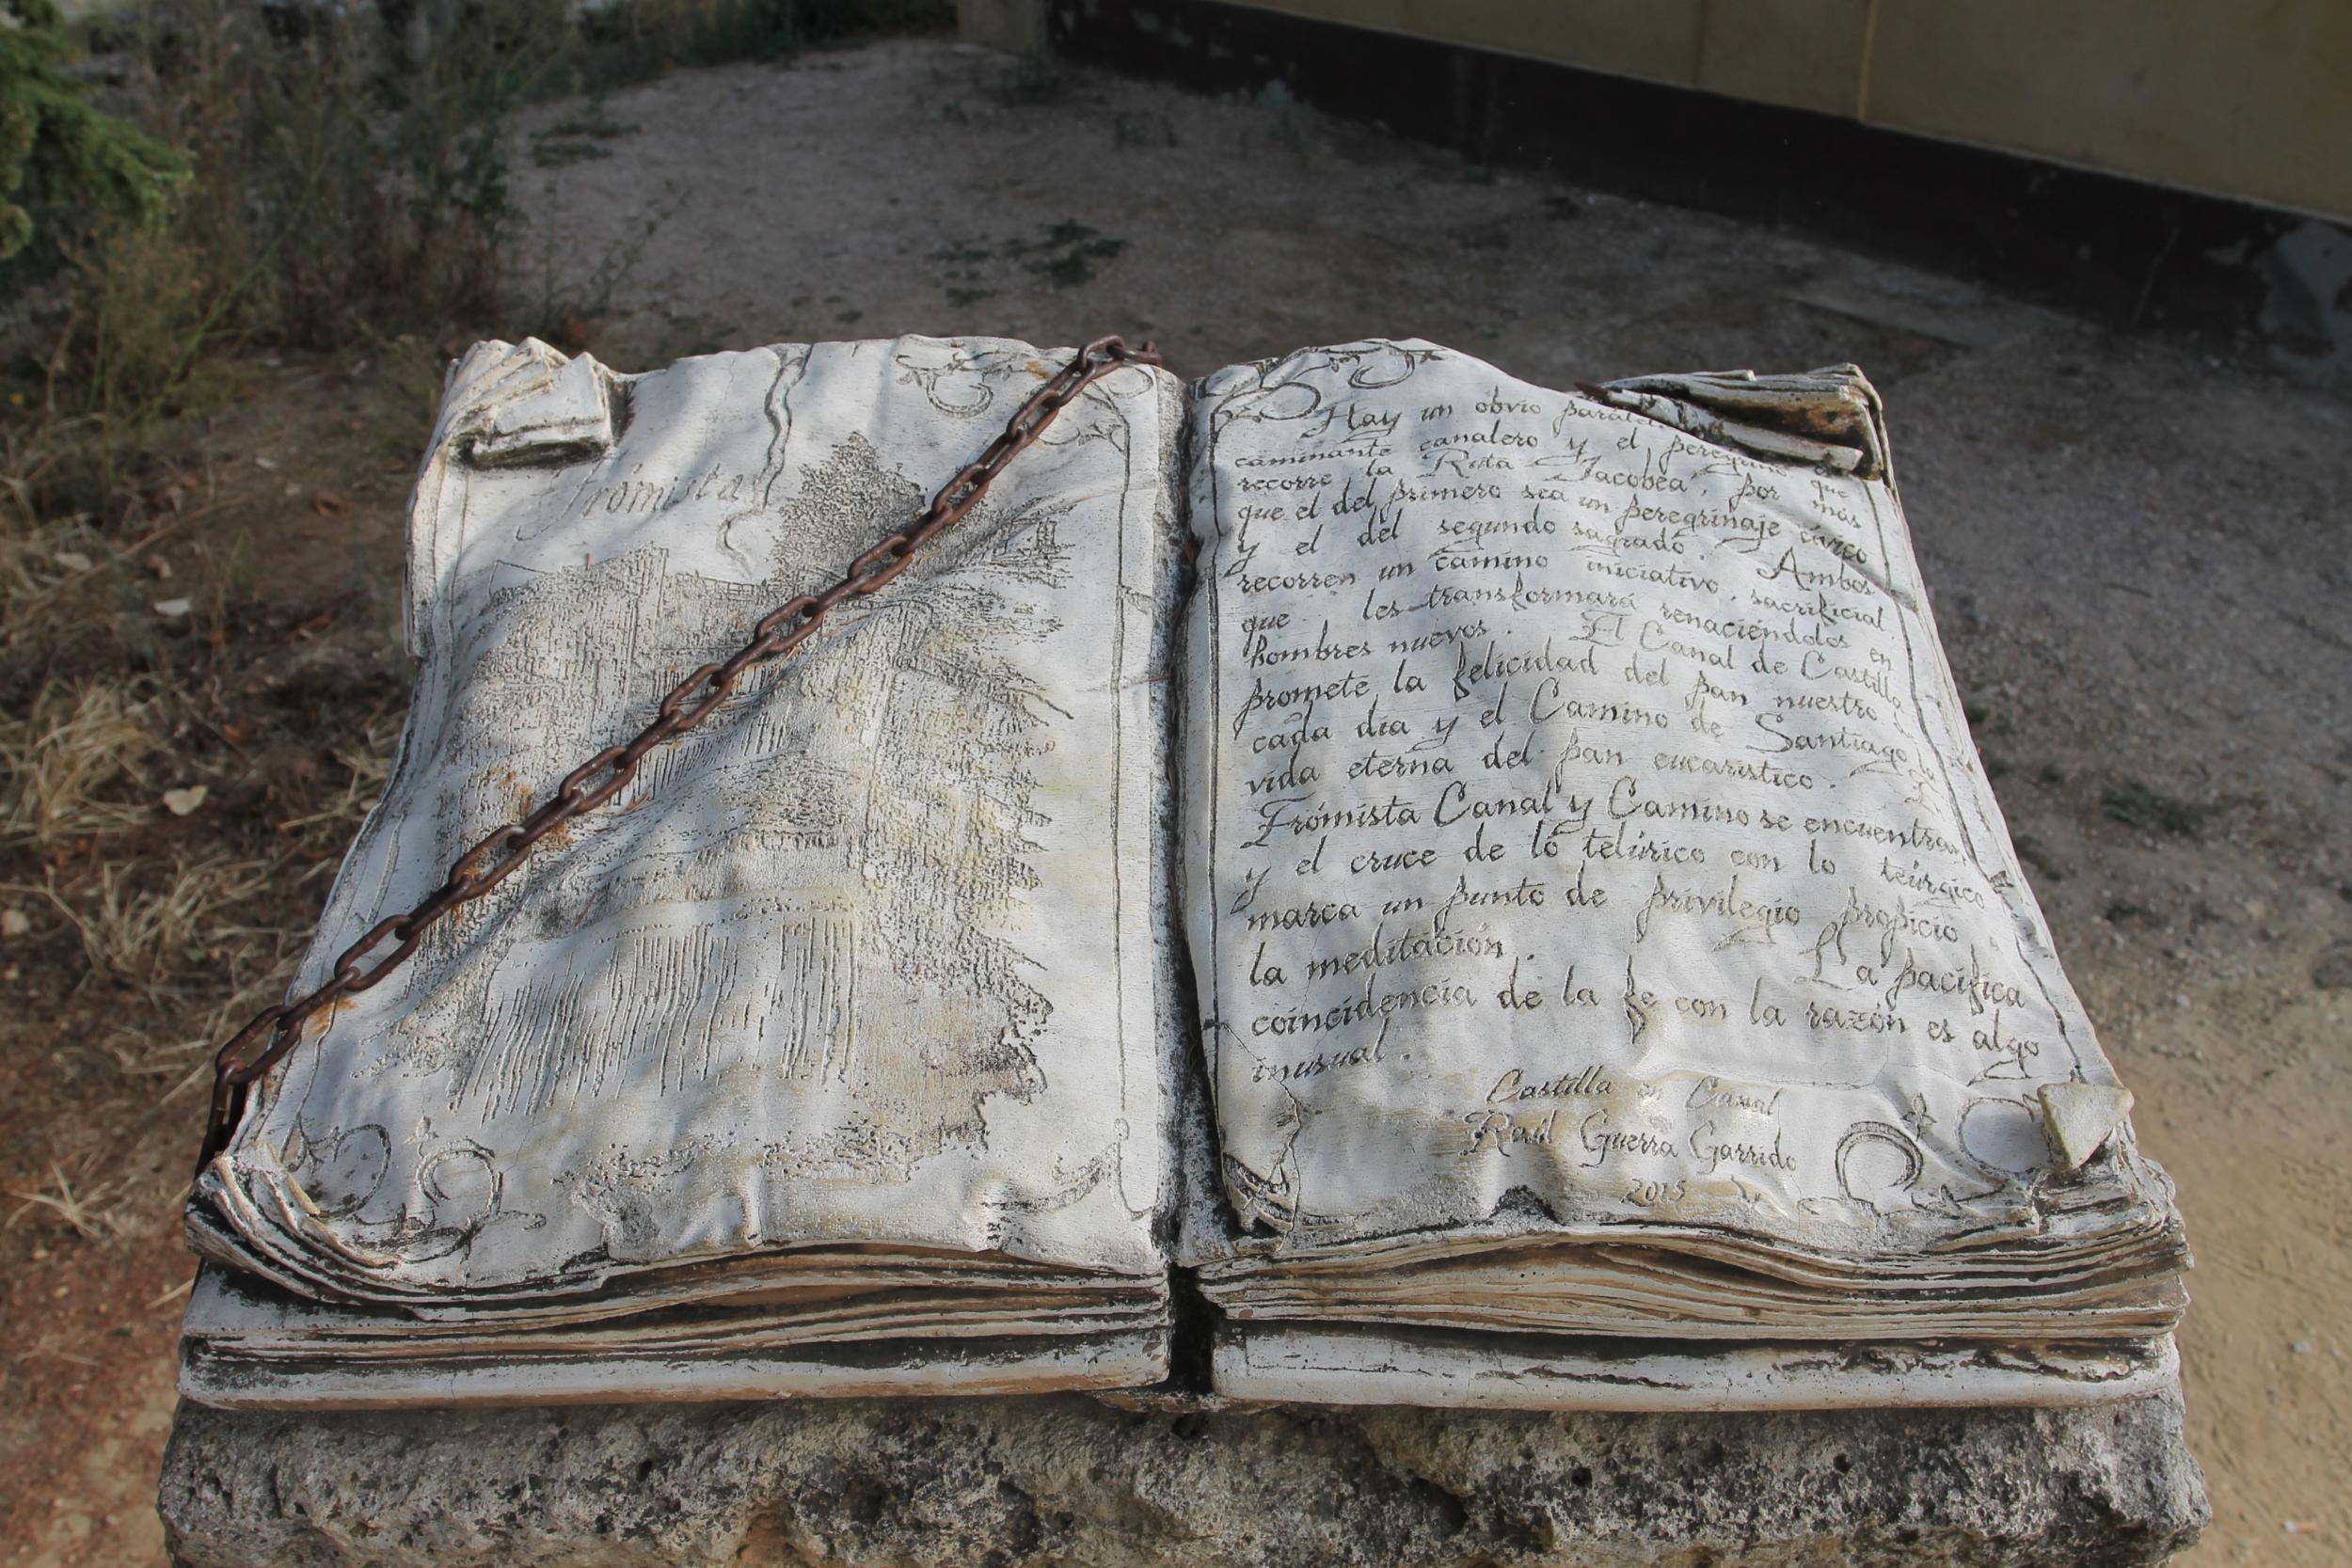 Frómista
Hay un obvio
caminante canalero y el peregrino que
recorre la Ruta Jacobea, por más
que el del primero sea un peregrinaje cívico
y el del segundo sagrado. Ambos
recorren un camino iniciativo, sacrificial
que les transformará renaciéndoles en
hombres nuevos. El Canal de Castilla
promete la felicidad del pan nuestro
cada día y el Camino de Santiago la
vida eterna del pan eucarístico.
Frómista Canal y Camino se encuentran
y el cruce de lo telúrico con lo teúrgico
marca un punto de privilegio propicio
la meditación. La pacífica
coincidencia de la fe con la razón es algo
inusual.
Castilla en Canal
Raúl Guerra Garrido
2015